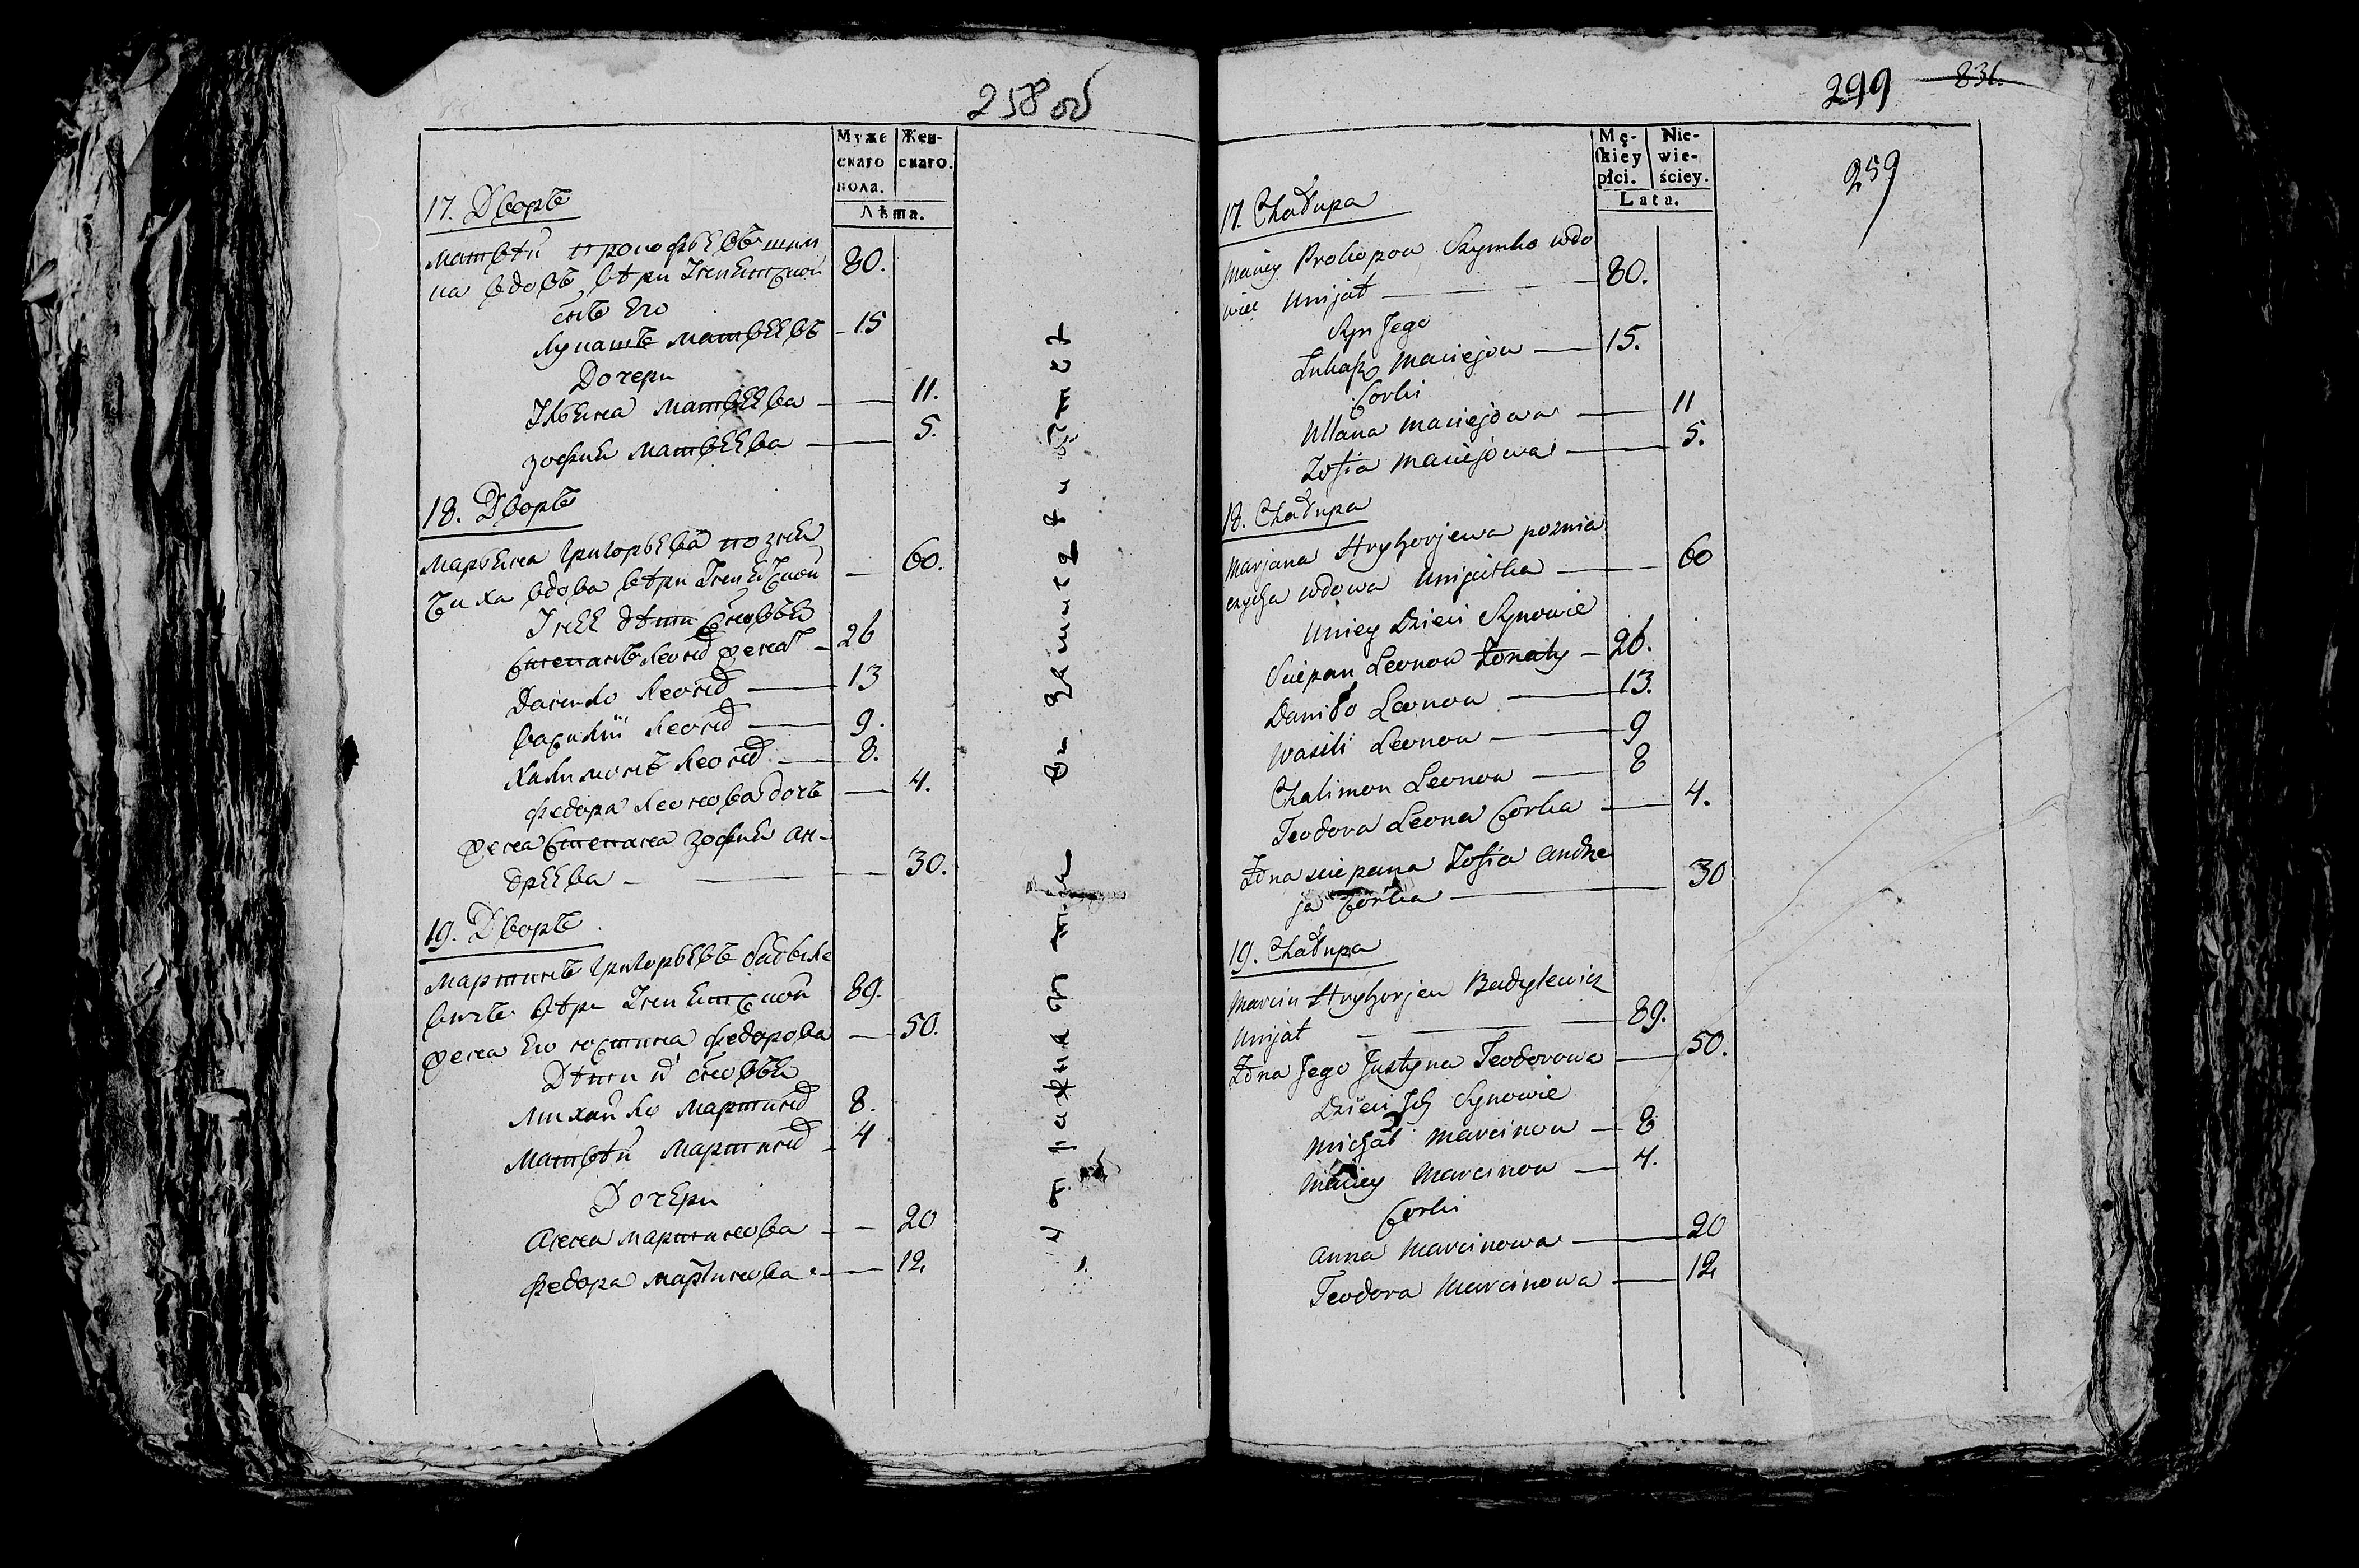 258 об
Муже
скаго
пола.
Жен-
скаго.
Лѣта.
17. Дворъ
Матвѣй Прокофьевъ
на вдовъ вѣри 80.
сынъ Его
Лукашъ Матвеевъ - 15
Дочери
Ульяна Матвеева — 11.
Зофия Матвеева — 5.
18. Дворъ
Марьяна Григорьева
вдова вѣри — 60.
У нее дѣти сыновья
Степанъ Леонов женат - 26
Данило Леонов — 13
Василий Леонов — 9.
Халимонъ Леонов — 8.
Федора Леонова дочь — 4.
жена Степана Зофия Ан-
дреева — 30.
19. Дворъ
Мартинъ Григорьевъ Бадыле
вичъ вѣри 89.
жена Его Юстина Федорова — 50.
Дѣти их сыновья
Михайло Мартинов 8.
Матвѣй Мартинов - 4
Дочери
Анна Мартинова — 20
Федора Мартинова — 12
299 831.
259
Mę-
skiey
płci.
Nie-
wie-
ściey.
Lata.
17. Chałupa
Maciey Prokopow Szymko wdo
wiec Unijat — 80.
Syn Jego
Łukasz Maciejow — 15.
Corki
Ullana Maciejowa — 11
Zofia Maciejowa — 5.
18. Chałupa
Marjana Hryhorjewa poznia
czycha wdowa Unijatka — 60
Uniey Dzieci Synowie
Sciepan Leonow Zonaty — 26.
Daniło Leonow — 13.
Wasili Leonow — 9
Chalimon Leonow — 8
Teodora Leona Corka — 4.
Zona sciepana Zofia Andrze
ja Corka — 30
19. Chałupa
Marcin Hryhorjew Badylewicz
Unijat — 89.
Zona Jego Justyna Teodorowa — 50.
Dzieci Jch Synowie
Michał Marcinow — 8
Maciey Marcinow — 4.
Corki
Anna Marcinowa — 20
Teodora Marcinowa — 12